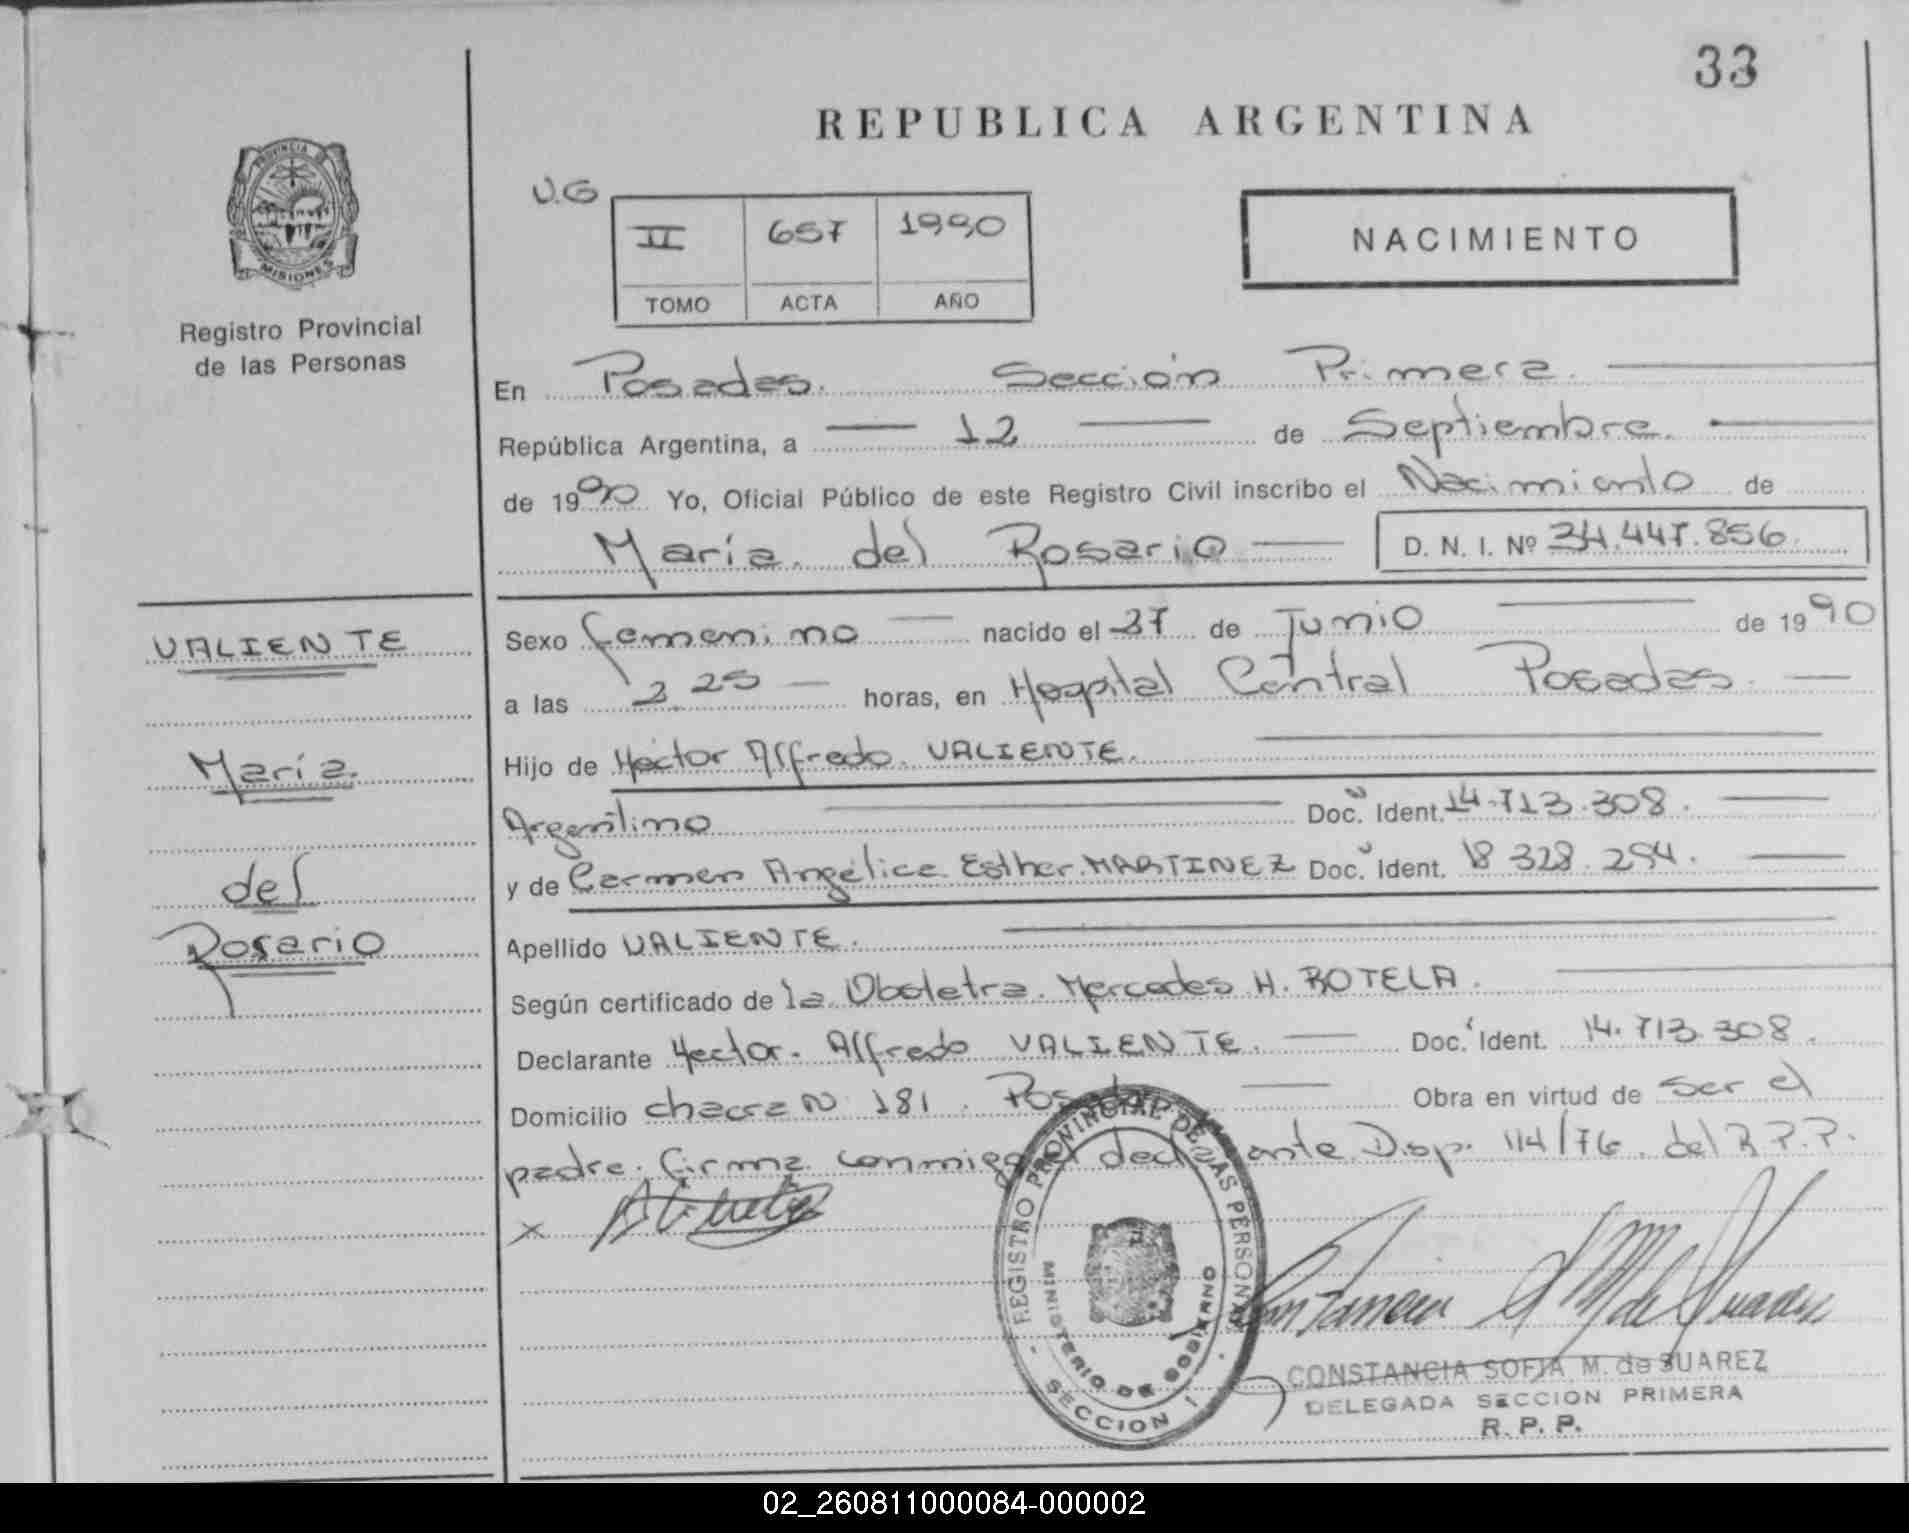 33
REPUBLICA ARGENTINA
PROVINCIA DE
MISIONES
Registro Provincial
de las Personas
U.G
II 657 1990
TOMO ACTA AÑO
NACIMIENTO
En Posadas. Sección Primera.
República Argentina, a 12 de Septiembre.
de 1990 Yo, Oficial Público de este Registro Civil inscribo el Nacimiento de
María del Rosario D. N. I. Nº 34.447.856.
VALIENTE
María
del
Rosario
Sexo femenino nacido el 27 de Junio de 1990
a las 2.25 horas, en Hospital Central Posadas.
Hijo de Héctor Alfredo VALIENTE.
Argentino Doc. Ident. 14.713.308.
y de Carmen Angélica Esther MARTINEZ Doc. Ident. 18 328.254.
Apellido VALIENTE.
Según certificado de la Obstetra Mercedes H. BOTELA.
Declarante Hector Alfredo VALIENTE. Doc. Ident. 14.713.308.
Domicilio chacra N 181. Posadas Obra en virtud de ser el
padre. firma conmigo el declarante Disp. 114/76 del R.P.P.
x
REGISTRO PROVINCIAL DE LAS PERSONAS
MINISTERIO DE GOBIERNO
SECCION 1
CONSTANCIA SOFIA M. de SUAREZ
DELEGADA SECCION PRIMERA
R. P. P.
02_260811000084-000002